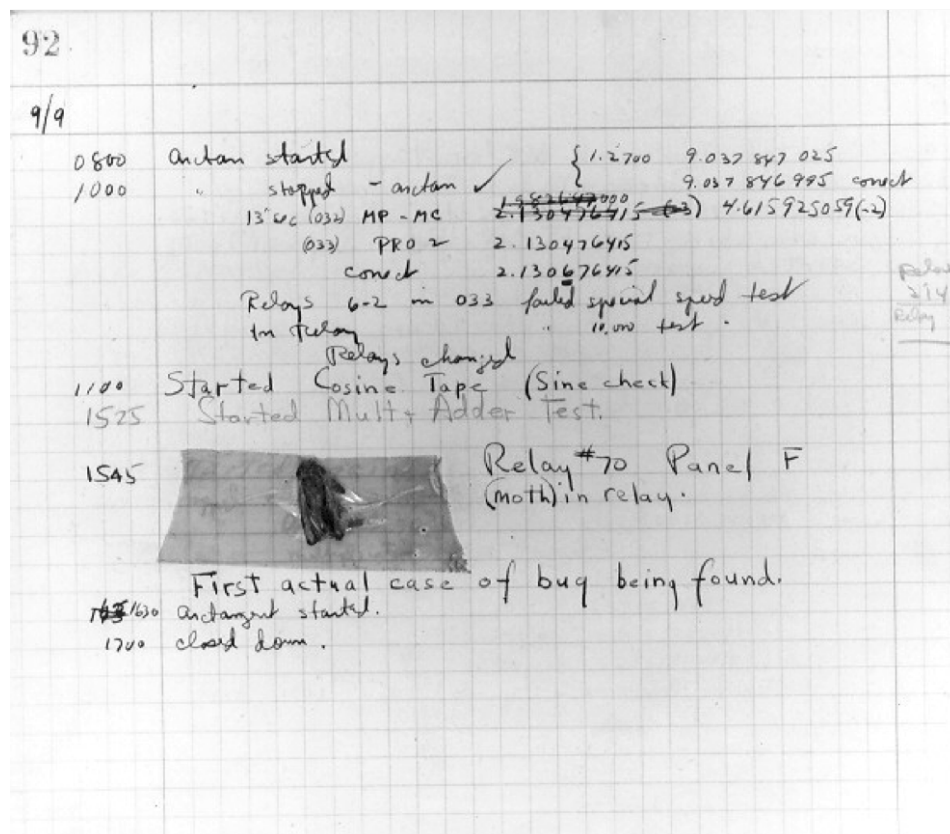 92
9/9
0800 Antan started { 1.2700 9.037 847 025
1000 " stopped - antan ✓ 9.037 846 995 conect
13" sec (032) MP - MC 2.130476415 (-3) 4.615925059(-2)
(033) PRO 2 2.130476415
conect 2.130676415
Relays 6-2 in 033 failed special speed test
In Relay " 10,000 test .
Relay
214
Relay
Relays changed
1100 Started Cosine Tape (Sine check)
1525 Started Mult + Adder Test.
1545 Relay #70 Panel F
(moth) in relay.
First actual case of bug being found.
1630 antangent started.
1700 closed down .